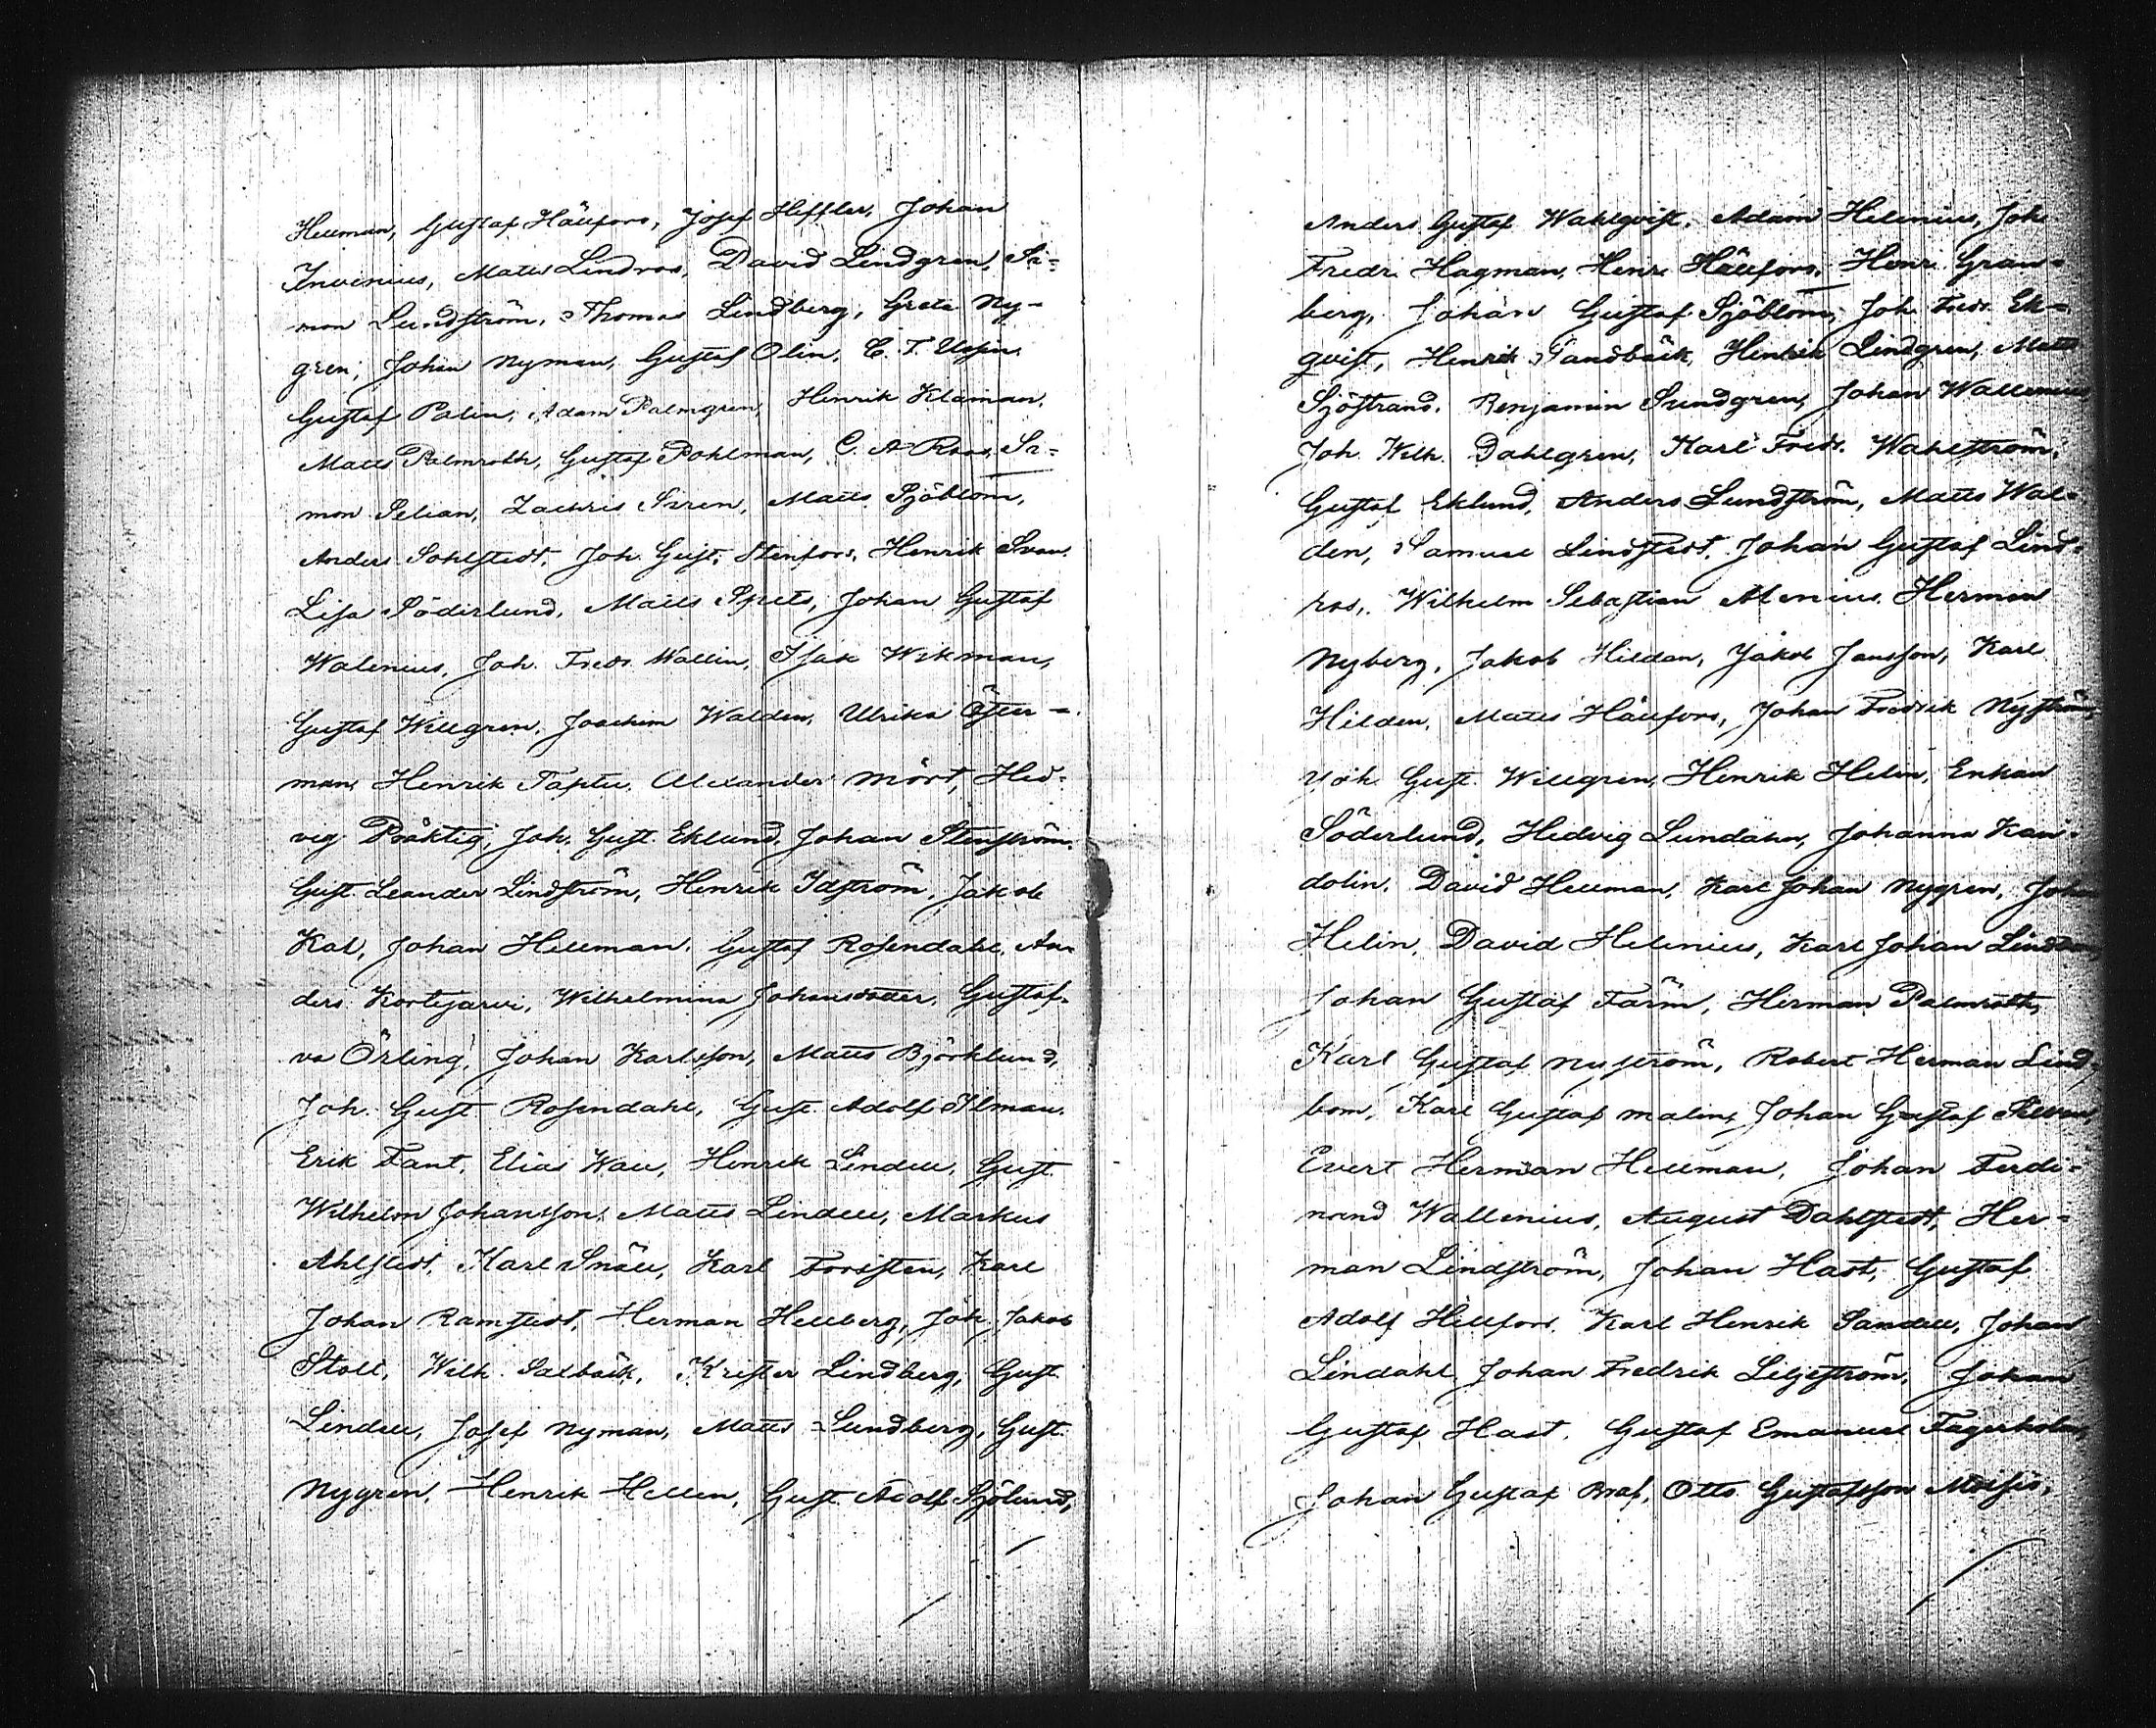 Hellman, Gustaf Hällfors, Josef Heffler, Johan
Invenius, Matts Lindroos, David Lindgren, Si-
mon Lundström, Thomas Lindberg, Greta Ny-
gren, Johan Nyman, Gustaf Olin, C. F.
Gustaf Palin, Adam Palmgren, Henrik Klaman,
Matts Palmroth, Gustaf Pohlman, C. A Roos, Si-
mon Selian, Zachris Siren, Matts Sjöblom,
Anders Sohlstedt, Joh. Gust. Stenfors, Henrik Svan.
Lisa Söderlund, Matts Spets, Johan Gustaf
Walenius, Joh. Fredr. Wallin, Isak Wikman,
Gustaf Willgren, Joachim Walden, Ulrika Öster-
man, Henrik Tapter, Alexander Mört, Hed-
vig Präktig, Joh. Gust. Eklund, Johan Stenström.
Gust. Leander Lindström, Henrik Idström, Jakob
Kal, Johan Hellman, Gustaf Rosendahl, An-
ders Kortejarvi, Wilhelmina Johansdotter, Gustaf-
va Örling, Johan Karlsson, Matts Björklund,
Joh. Gust. Rosendahl, Gust. Adolf Ilman.
Erik Fant, Elias Wall, Henrik Lindell, Gust.
Wilhelm Johansson, Matts Lindell, Markus
Ahlstedt, Karl Snäll, Karl Forsten, Karl
Johan Ramstedt, Herman Hellberg, Joh. Jakob
Stoll, Wilh. Salbäck, Krister Lindberg, Gust.
Lindell, Josef Nyman, Matts Lundberg, Gust.
Nygren, Henrik Hellen, Gust. Adolf Sjölund,
Anders Gustaf Wahlqvist, Adam Helenius, Joh.
Fredr. Hagman, Henr. Hällfors, Henr. Gran-
berg, Johan Gustaf Sjöblom, Joh. Fredr. Ek-
qvist, Henrik Sandbäck, Henrik Lindgren, Matts
Sjöstrand, Benjamin Sundgren, Johan Wallenius
Joh. Wilh. Dahlgren, Karl Fredr. Wahlström,
Gustaf Eklund, Anders Lundström, Matts Wal-
den, Samuel Lindstedt, Johan Gustaf Lind-
ros, Wilhelm Sebastian Alenius, Herman
Nyberg, Jakob Hildan, Jakob Jansson, Karl
Hilden, Matts Hällfors, Johan Fredrik Nyström,
Joh. Gust. Willgren, Henrik Helin, Enkan
Söderlund, Hedvig Lundahn, Johanna Kan-
dolin, David Hellman, Karl Johan Nygren, Johan
Helin, David Helenius, Karl Johan
Johan Gustaf Färm, Herman Palmroth,
Karl Gustaf Nyström, Robert Herman Lind-
bom, Karl Gustaf Malin, Johan Gustaf
Evert Herman Hellman, Johan Ferdi-
nand Wallenius, August Dahlstedt, Her-
man Lindström, Johan Hast, Gustaf
Adolf Hellfors, Karl Henrik Sandell, Johan
Lindahl, Johan Fredrik Liljeström, Johan
Gustaf Hast, Gustaf Emanuel Fagerholm,
Johan Gustaf Braf, Otto Gustafsson Moisio,